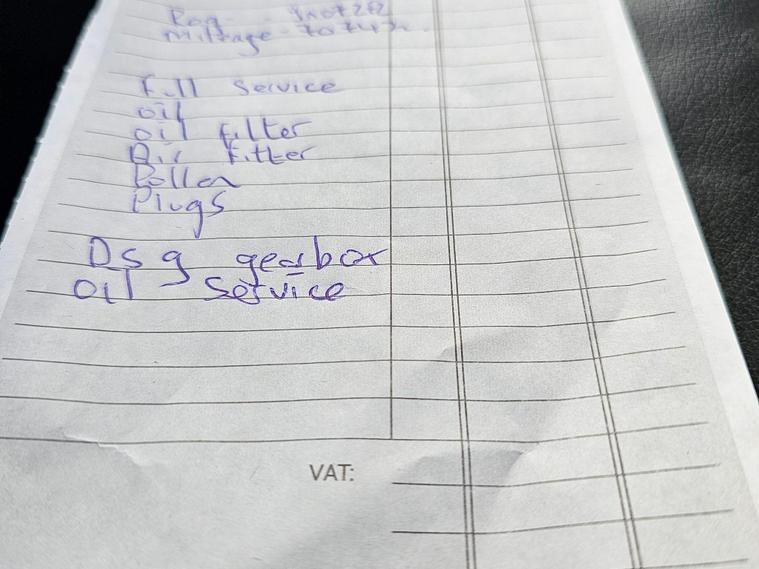 Reg
Millage
Full Service
oil
oil filter
Air filter
Pollen
Plugs
Dsg gearbox
oil service
VAT: